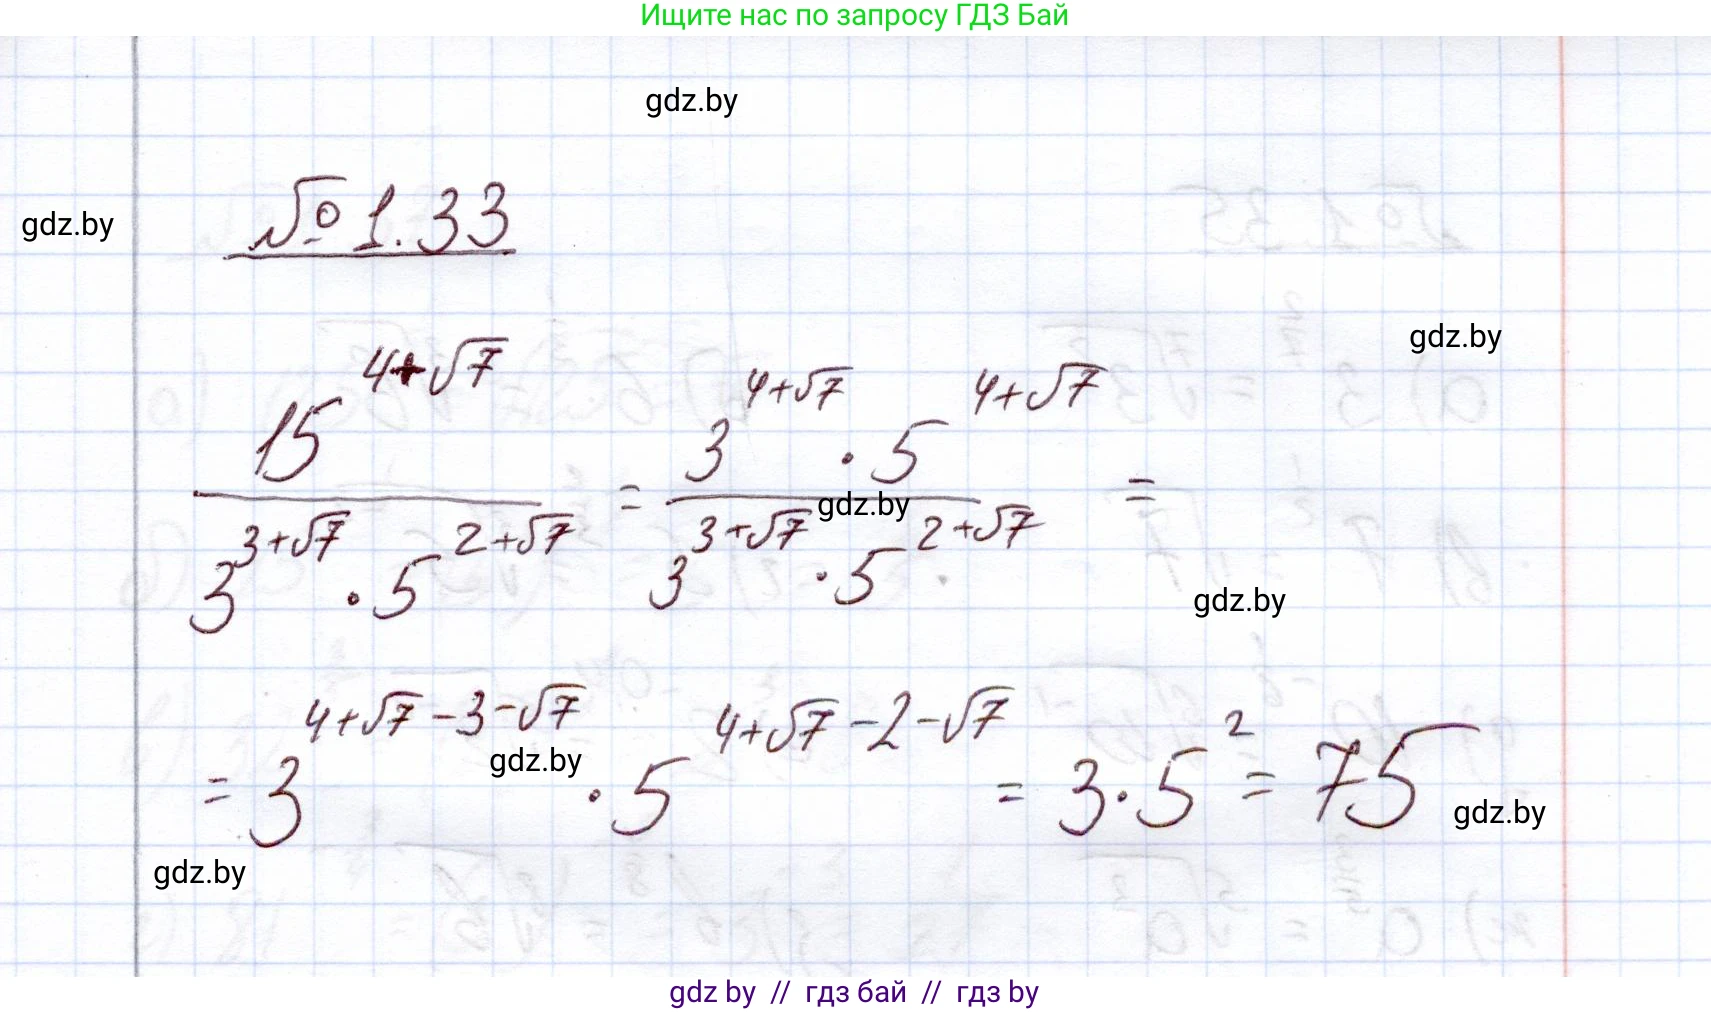 Ищите нас по запросу ГДЗ Бай
gdz.by
№ 1.33
gdz.by
gdz.by
15^{4+√7} / (3^{3+√7} · 5^{2+√7}) = (3^{4+√7} · 5^{4+√7}) / (3^{3+√7} · 5^{2+√7}) =
gdz.by
gdz.by
= 3^{4+√7-3-√7} · 5^{4+√7-2-√7} = 3·5^2 = 75
gdz.by
gdz.by
gdz.by
gdz by // гдз бай // гдз by